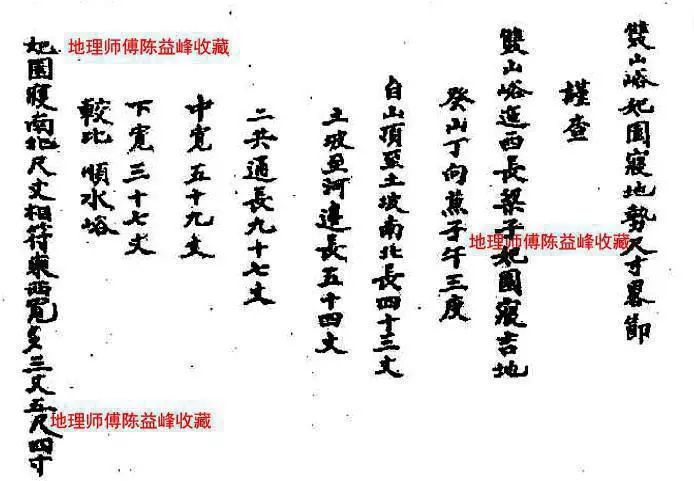 雙山峪妃園寢地勢尺寸畧節
謹查
雙山峪迤西長梁子妃園寢吉地
癸山丁向蕪子午三度
自山頂至土坡南北長四十三丈
土坡至河邊長五十四丈
二共通長九十七丈
中寬五十九丈
下寬三十七丈
較比順水峪
妃園寢南北尺丈相符東西寬多三丈五尺四寸
地理师傅陈益峰收藏
地理师傅陈益峰收藏
地理师傅陈益峰收藏